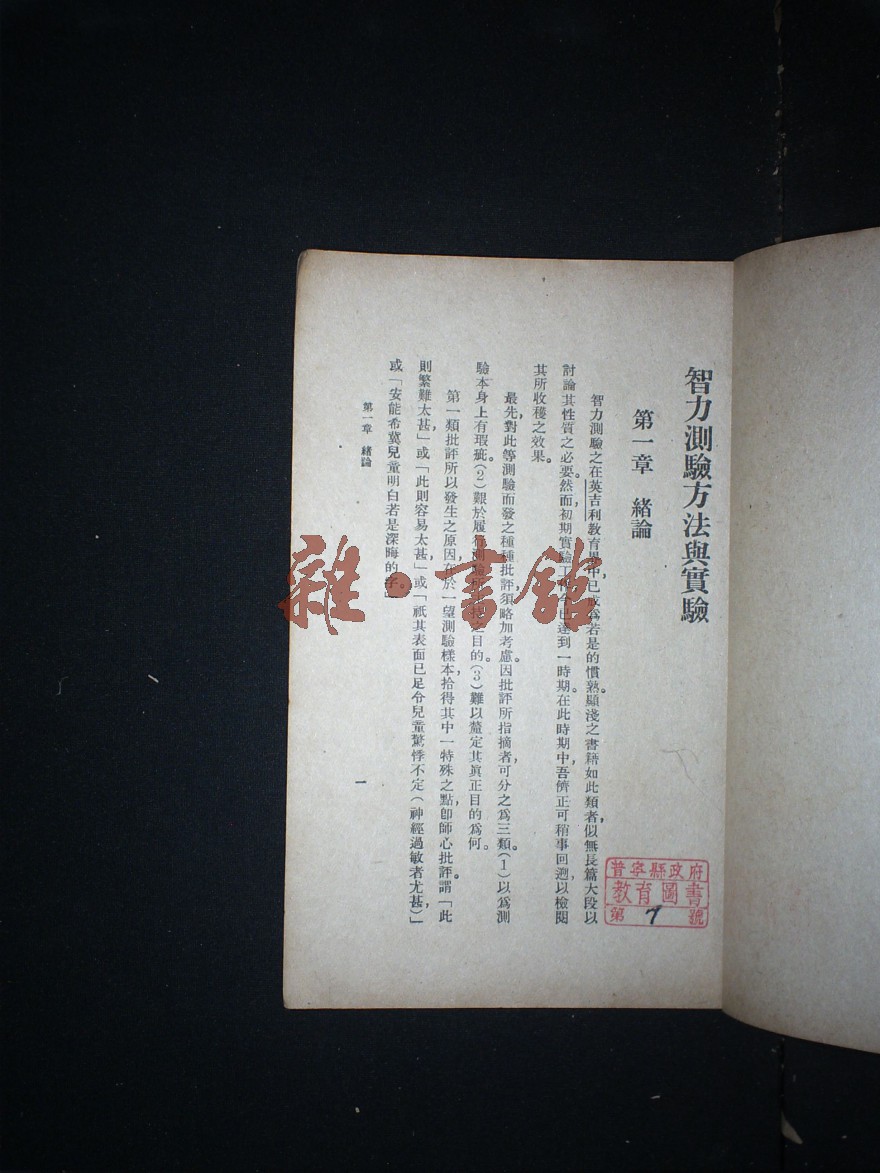 智力測驗方法與實驗
第一章　緒論
智力測驗之在英吉利教育學中，已成爲若是的慣熟。顯淺之書籍如此類者，似無長篇大段以
討論其性質之必要。然而初期實驗工作今已達到一時期。在此時期中，吾儕正可稍事回溯，以檢閱
其所收穫之效果。
最先，對此等測驗而發之種種批評，須略加考慮。因批評所指摘者，可分之爲三類。(1)以爲測
驗本身上有瑕疵。(2)艱於履行測驗所之目的。(3)難以釐定其眞正目的爲何。
第一類批評所以發生之原因，在於一望測驗樣本，拾得其中一特殊之點，卽師心批評。謂「此
則繁難太甚，」或「此則容易太甚，」或「祇其表面已足令兒童驚悸不定（神經過敏者尤甚）」
或「安能希冀兒童明白若是深晦的字。」
第一章　緒論
一
普寧縣政府
教育圖書
第 7 號
雜·書館